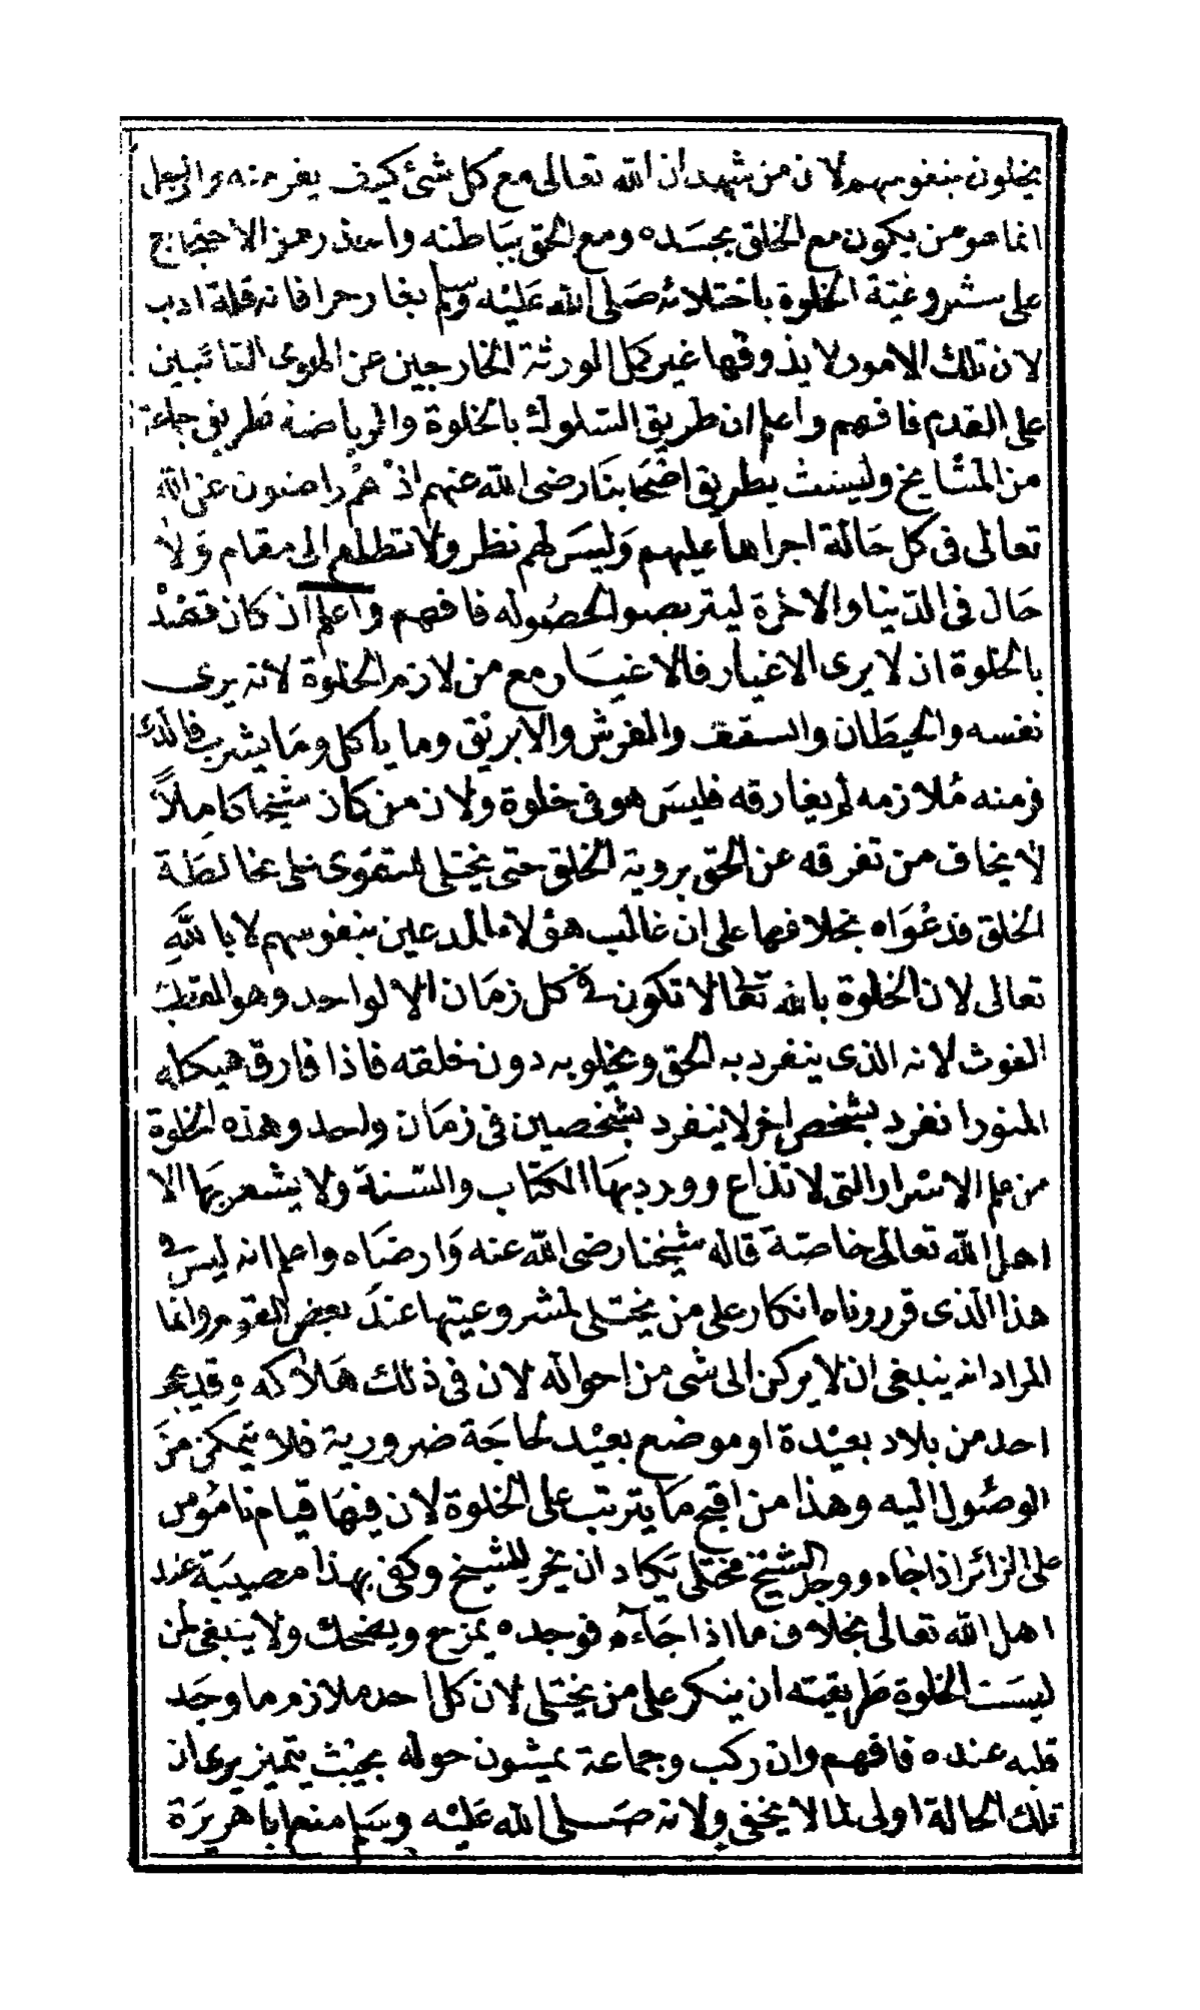 يخلون بنفوسهم لان من شهد ان الله تعالى مع كل شئ كيف يفر منه والرجل
انما هو من يكون مع الخلق بجسده ومع الحق بباطنه واحذر من الاحتجاج
على مشروعية الخلوة باختلائه صلى الله عليه وسلم بغار حرا فانه قلة ادب
لان تلك الامور لا يذوقها غير كمل الورثة الخارجين عن الهوى التائبين
على القدم فافهم واعلم ان طريق السلوك بالخلوة والرياضة طريق جماعة
من المشايخ وليست بطريق اصحابنا رضى الله عنهم اذ هم راضون عن الله
تعالى فى كل حالة اجراها عليهم وليس لهم نظر ولا تطلع الى مقام ولا
حال فى الدنيا والاخرة ليتربصوا لحصوله فافهم واعلم اذ كان قصد
بالخلوة ان لا يرى الاغيار فالاغيار مع من لازم الخلوة لانه يرى
نفسه والحيطان والسقف والفرش والابريق وما ياكل وما يشرب فالذى
فر منه ملازمه لم يفارقه فليس هو فى خلوة ولان من كان شيخا كاملاً
لا يخاف من تفرقه عن الحق بروية الخلق حتى يختلى ليتقوى على مخالطة
الخلق فدعواه بخلافها على ان غالب هؤلاء المدعين بنفوسهم لا بالله
تعالى لان الخلوة بالله تعالى لا تكون فى كل زمان الا لواحد وهو القطب
الغوث لانه الذى ينفرد به الحق ويخلو به دون خلقه فاذا فارق هيكله
المنور انفرد بشخص اخر لا ينفرد بشخصين فى زمان واحد وهذه الخلوة
من علم الاسرار التى لا تذاع وورد بها الكتاب والسنة ولا يشعر بها الا
اهل الله تعالى خاصة قاله شيخنا رضى الله عنه وارضاه واعلم انه ليس فى
هذا الذى قررناه انكار على من يختلى لمشروعيتها عند بعض القوم وانما
المراد انه ينبغى ان لا يركن الى شى من احواله لان فى ذلك هلاكه وقد يجئ
احد من بلاد بعيدة او موضع بعيد لحاجة ضرورية فلا يتمكن من
الوصول اليه وهذا من اقبح ما يترتب على الخلوة لان فيها قيام ناموس
على الزائر اذا جاه ووجد الشيخ مختلى يكاد ان يخر للشيخ وكفى بهذا مصيبة عند
اهل الله تعالى بخلاف ما اذا جاءه فوجده يمزح ويضحك ولا ينبغى لمن
ليست الخلوة طريقته ان ينكر على من يختلى لان كل احد ملازم ما وجد
قلبه عنده فافهم وان ركب وجماعة يمشون حوله بحيث يتميز يرى ان
تلك الحالة اولى لما لا يخفى ولانه صلى الله عليه وسلم منع ابا هريرة